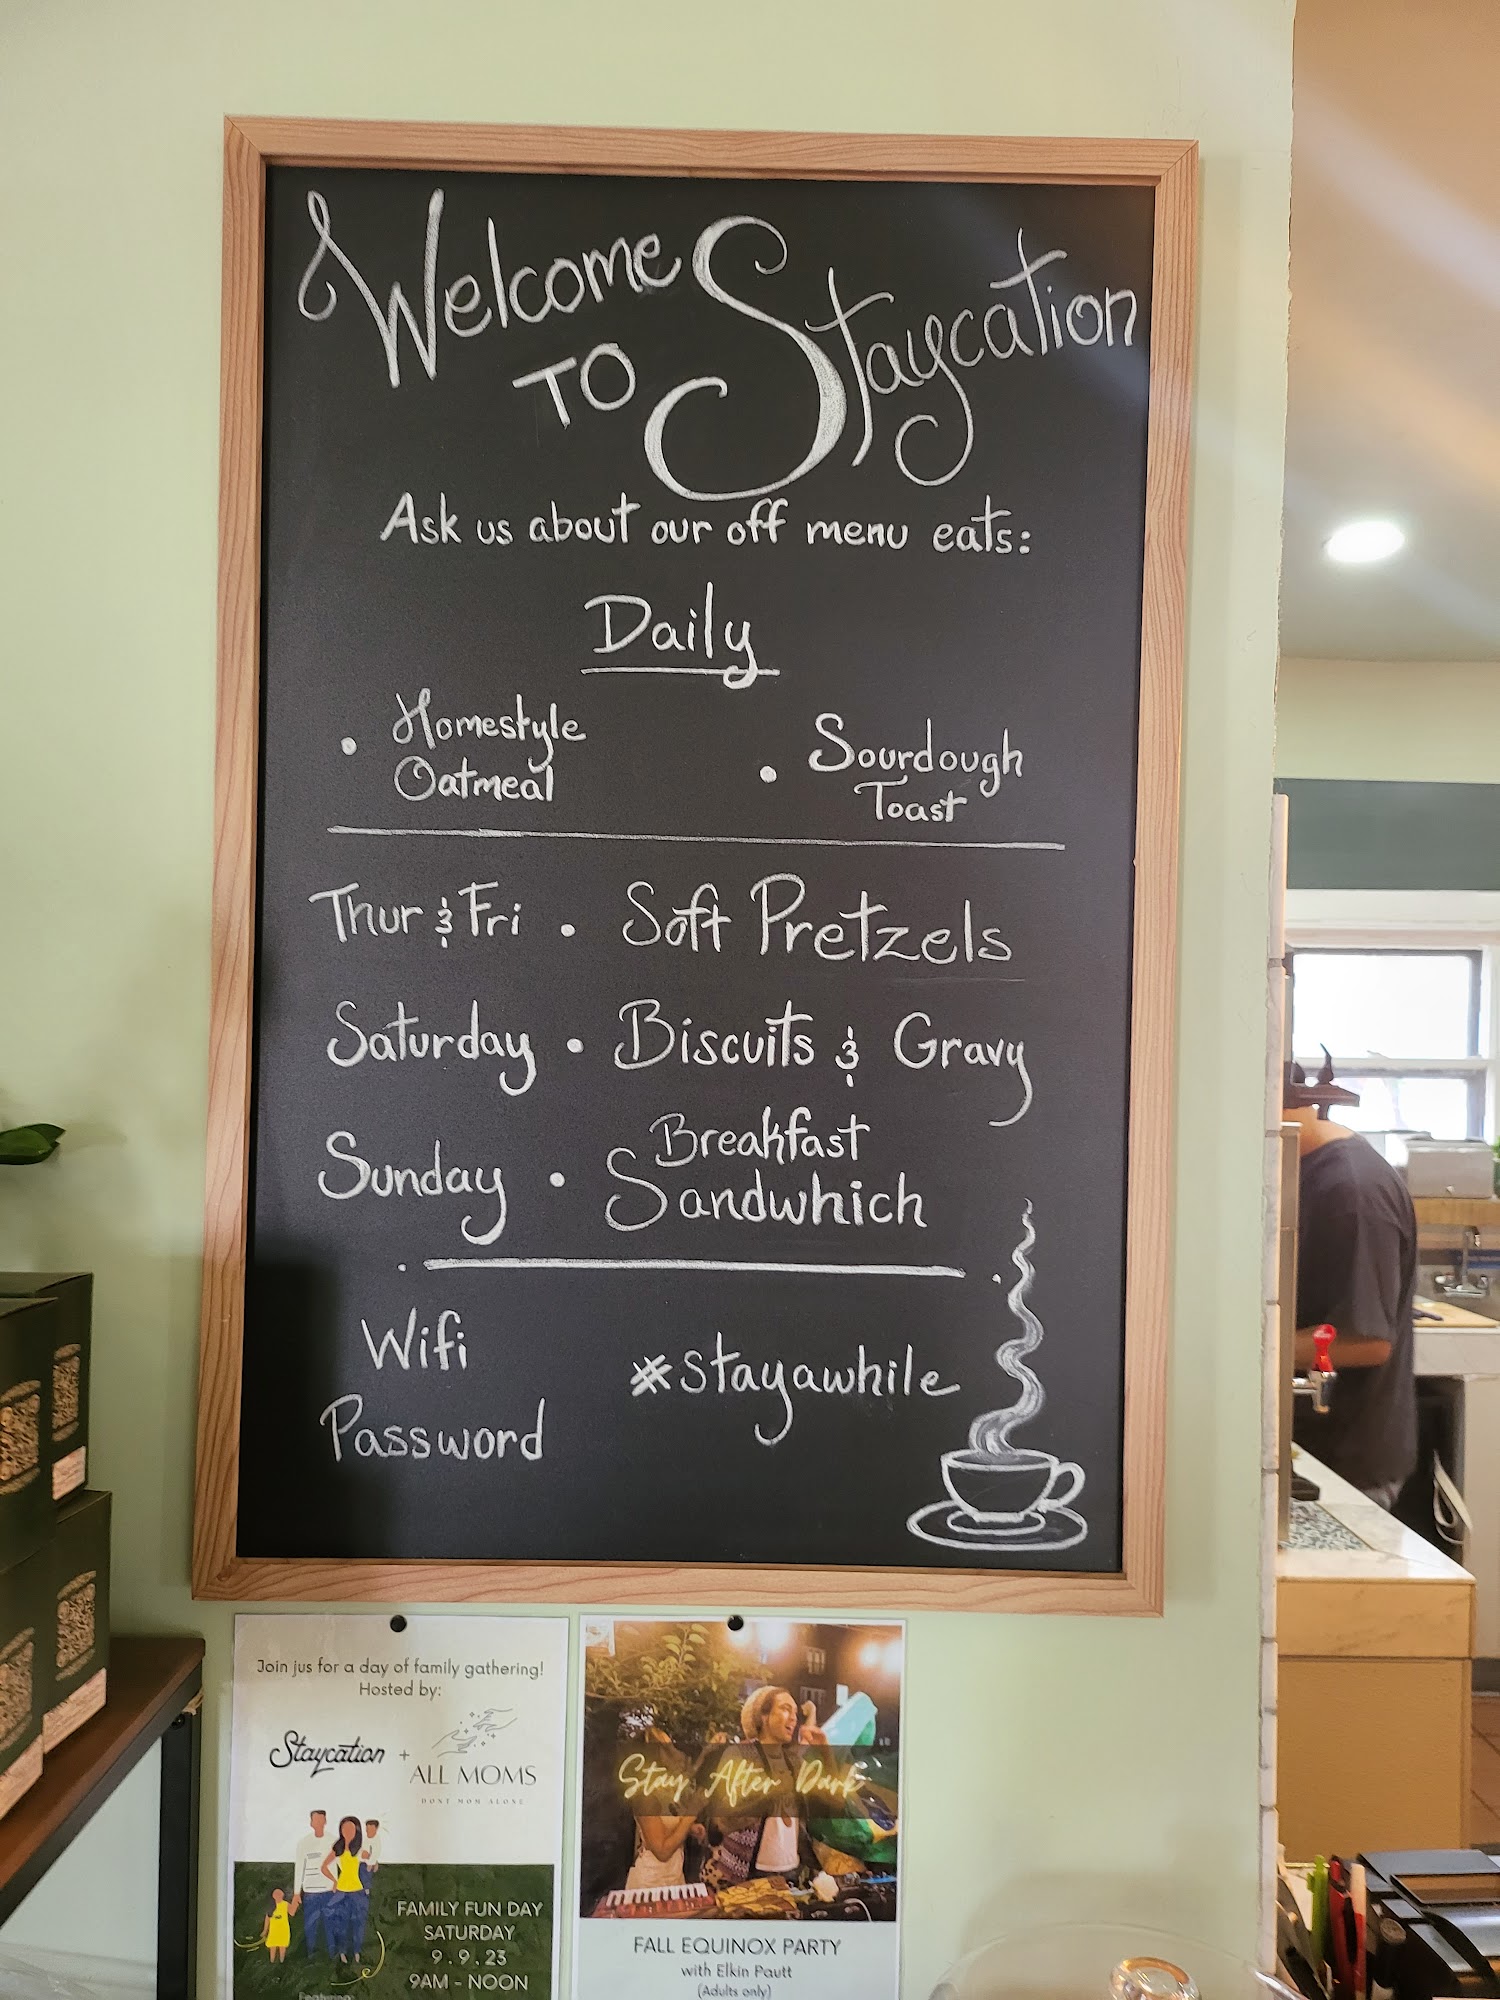 Welcome
TO Staycation
Ask us about our off menu eats:
Daily
• Homestyle
Oatmeal
• Sourdough
Toast
Thur & Fri • Soft Pretzels
Saturday • Biscuits & Gravy
Sunday • Breakfast
Sandwhich
Wifi
Password
#stayawhile
Join jus for a day of family gathering!
Hosted by:
Staycation + ALL MOMS
DONT MOM ALONE
FAMILY FUN DAY
SATURDAY
9.9.23
9AM - NOON
Featuring:
Stay After Dark
FALL EQUINOX PARTY
with Elkin Pautt
(Adults only)